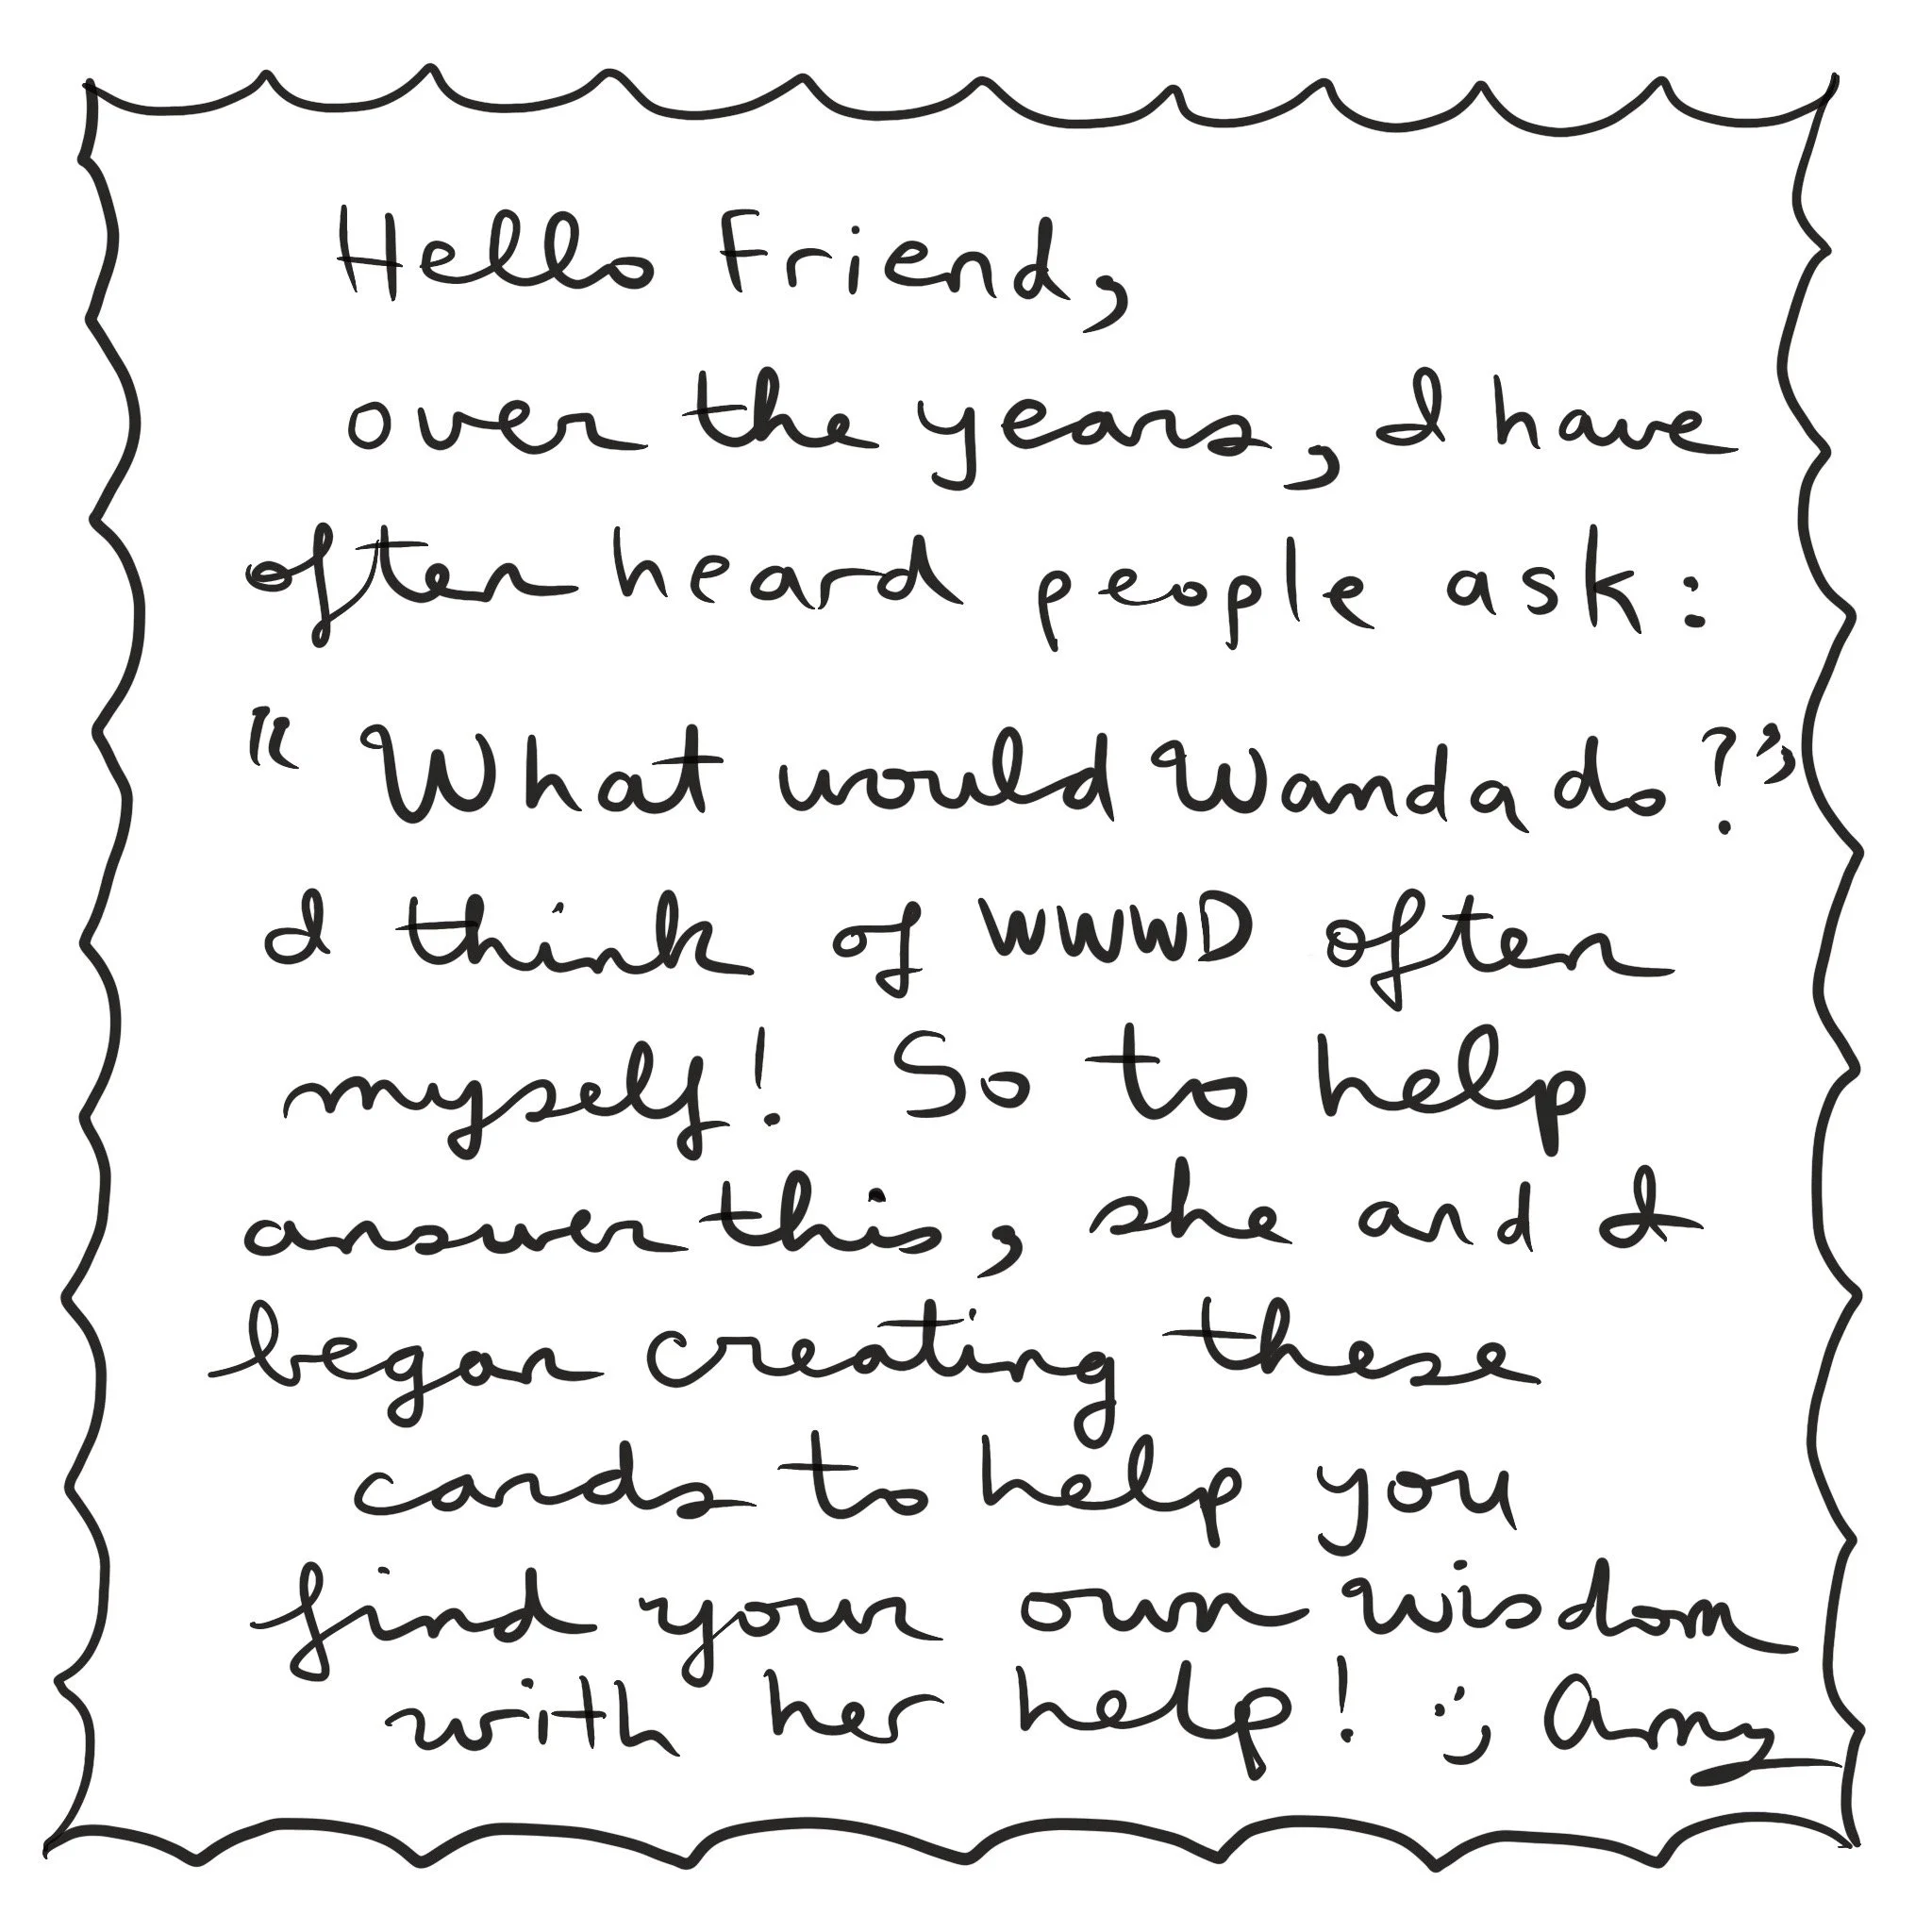 Hello Friend,
over the years, I have
often heard people ask:
"What would Wanda do?"
I think of WWWD often
myself! So to help
answer this, she and I
began creating these
cards to help you
find your own wisdom
with her help! :) Amy